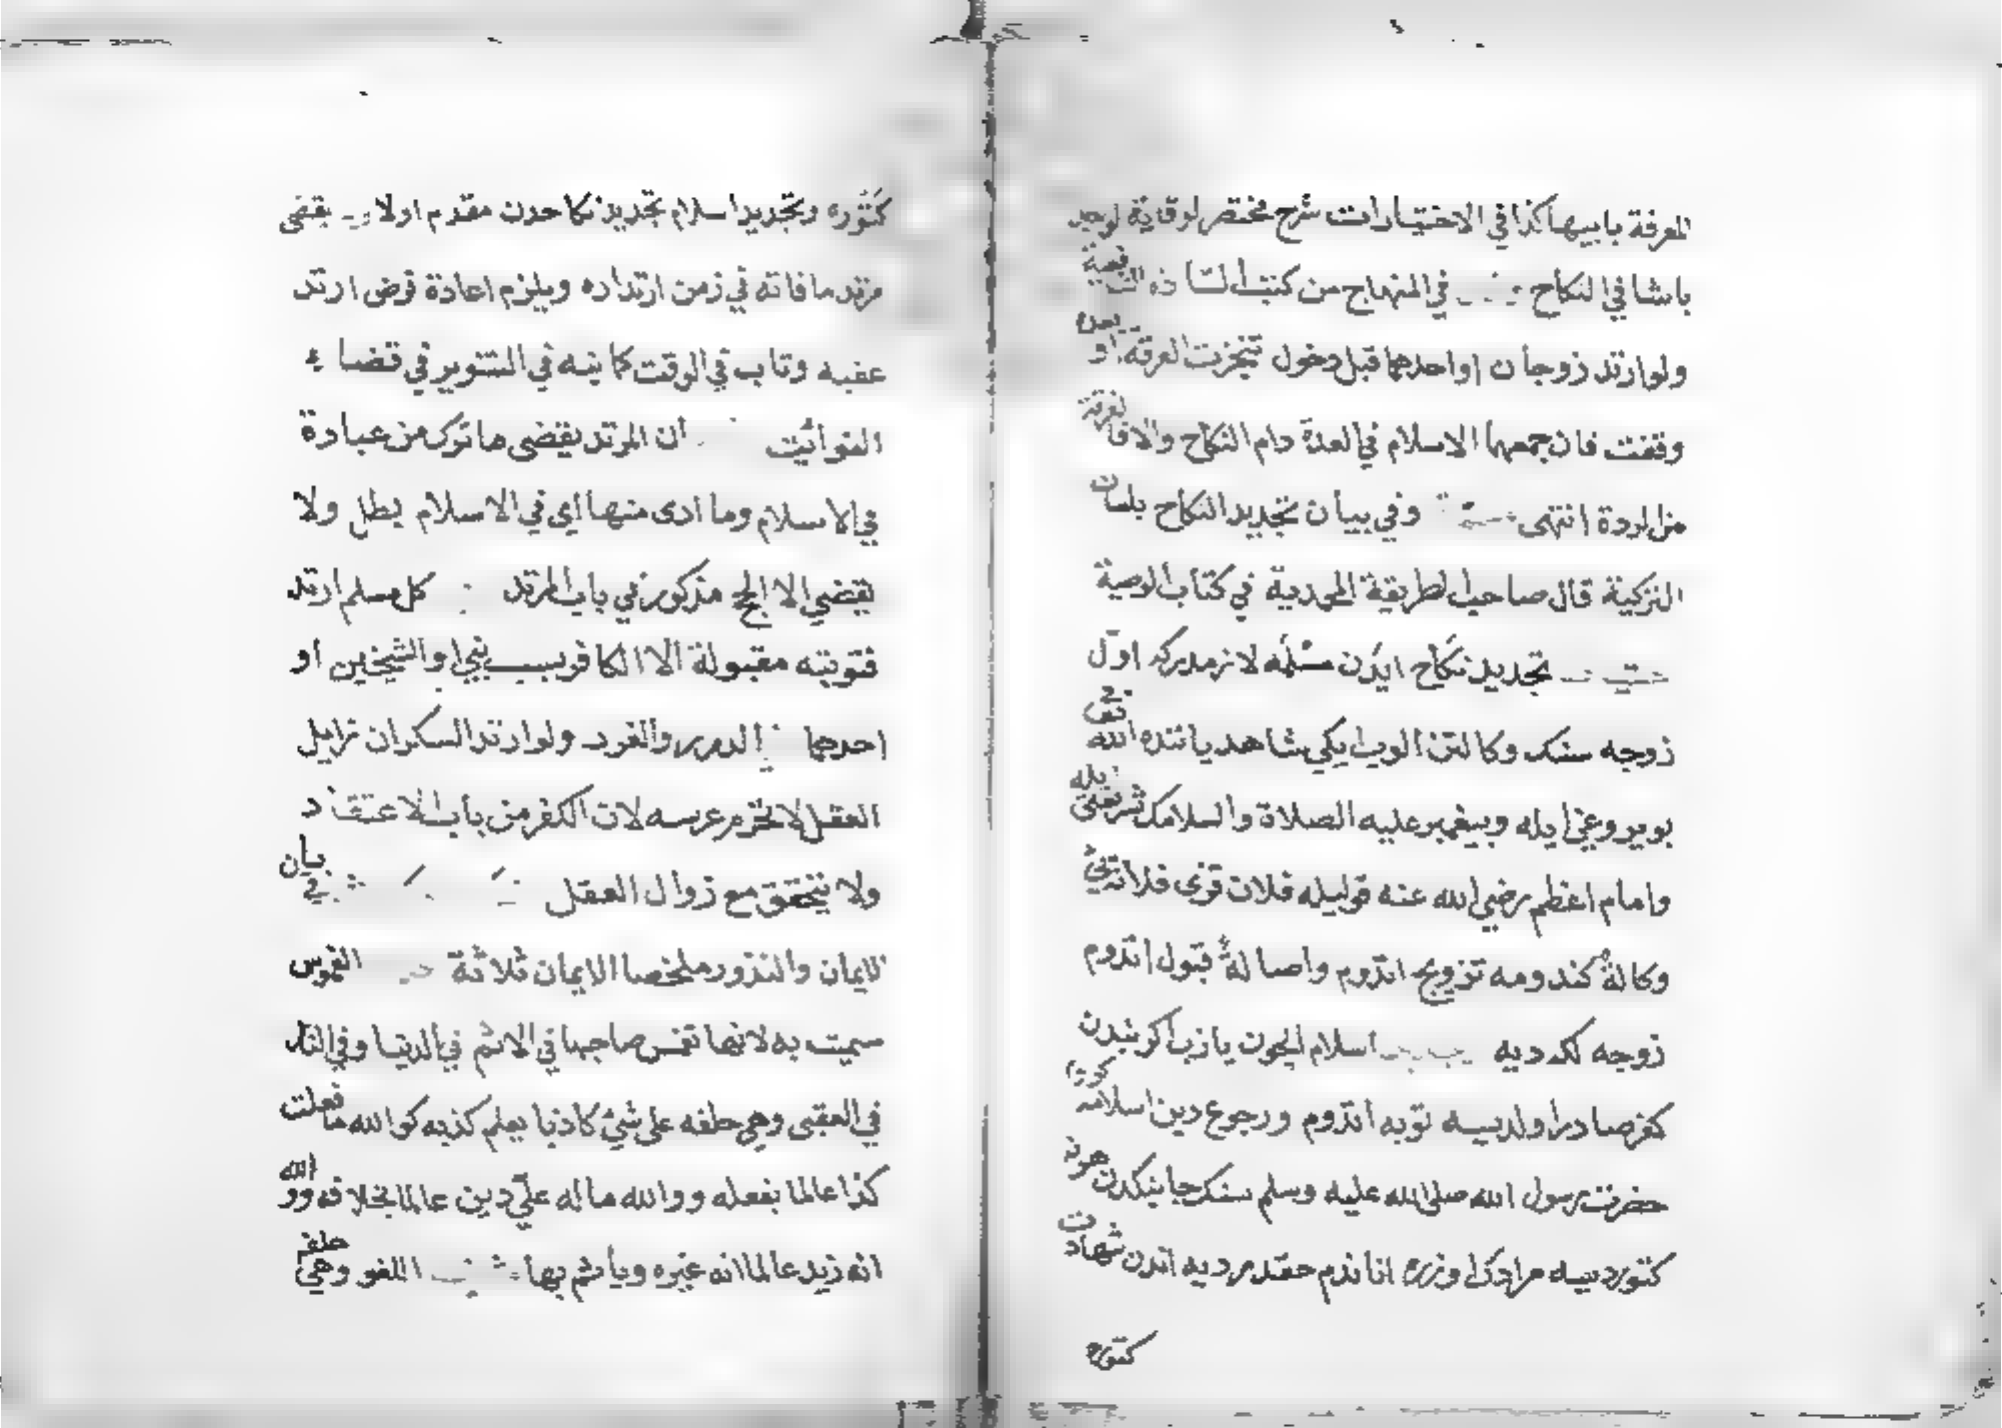 الفرقة بابيها كذا في الاختيارات شرح مختصر لوقاية لوجد
باشا في النكاح في المنهاج من كتب الشافعية
ولو ارتد زوجان او احدهما قبل دخول تنجزت الفرقة او بعده
وقفت فان جمعهما الاسلام في العدة دام النكاح والا فالفرقة
من الردة انتهى وفي بيان تجديد النكاح بلسان
التركية قال صاحب الطريقة المحمدية في كتاب الوصية
تجديد نكاح ايدن مسئله لازمدركه اول
زوجه سنك وكالتن الوب ايكي شاهد ياننده الله
بويروغي ايله وبيغمبر عليه الصلاة والسلامك شريعتي
وامام اعظم رضي الله عنه قوليله فلان قزى فلانه يي
وكالة كندومه تزويج اتدوم واصالة قبول اتدوم
زوجه لكه ديه اسلام ايچون يا رب اكر بندن
كفر صادر اولدييسه توبه اتدوم ورجوع دين اسلامه
حضرت رسول الله صلى الله عليه وسلم سنك جانبكدن هر نه
كتوردييسه مرادك اوزره اناندم حقدر ديه اندن شهادت
كتوره
كتوره وتجديد اسلام تجديد نكاحدن مقدم اولا يقضي
مرتد ما فاته في زمن ارتداده ويلزم اعادة فرض ارتد
عقبه وتاب في الوقت كما نبه في التنوير في قضاء
الفوائت ان المرتد يقضى ما ترك من عبادة
في الاسلام وما ادى منها اي في الاسلام يطل ولا
يقضي الا الحج مذكور في باب المرتد كل مسلم ارتد
فتوبته مقبولة الا الكافر بسبب نبي او الشيخين او
احدهما الدرر والغرر ولو ارتد السكران زايل
العقل لا تحرم عرسه لان الكفر من باب الاعتقاد
ولا يتحقق مع زوال العقل في بيان
الايمان والنذور ملخصا الايمان ثلاثة الغموس
سميت به لانها تغمس صاحبها في الاثم في الدنيا وفي النار
في العقبى وهي حلفه على شئ كاذبا يعلم كذبه كوالله ما فعلت
كذا عالما بفعله ووالله ماله علي دين عالما بخلافه ووالله
انه زيد عالما انه غيره ويأثم بها اللغو وهي حلفه